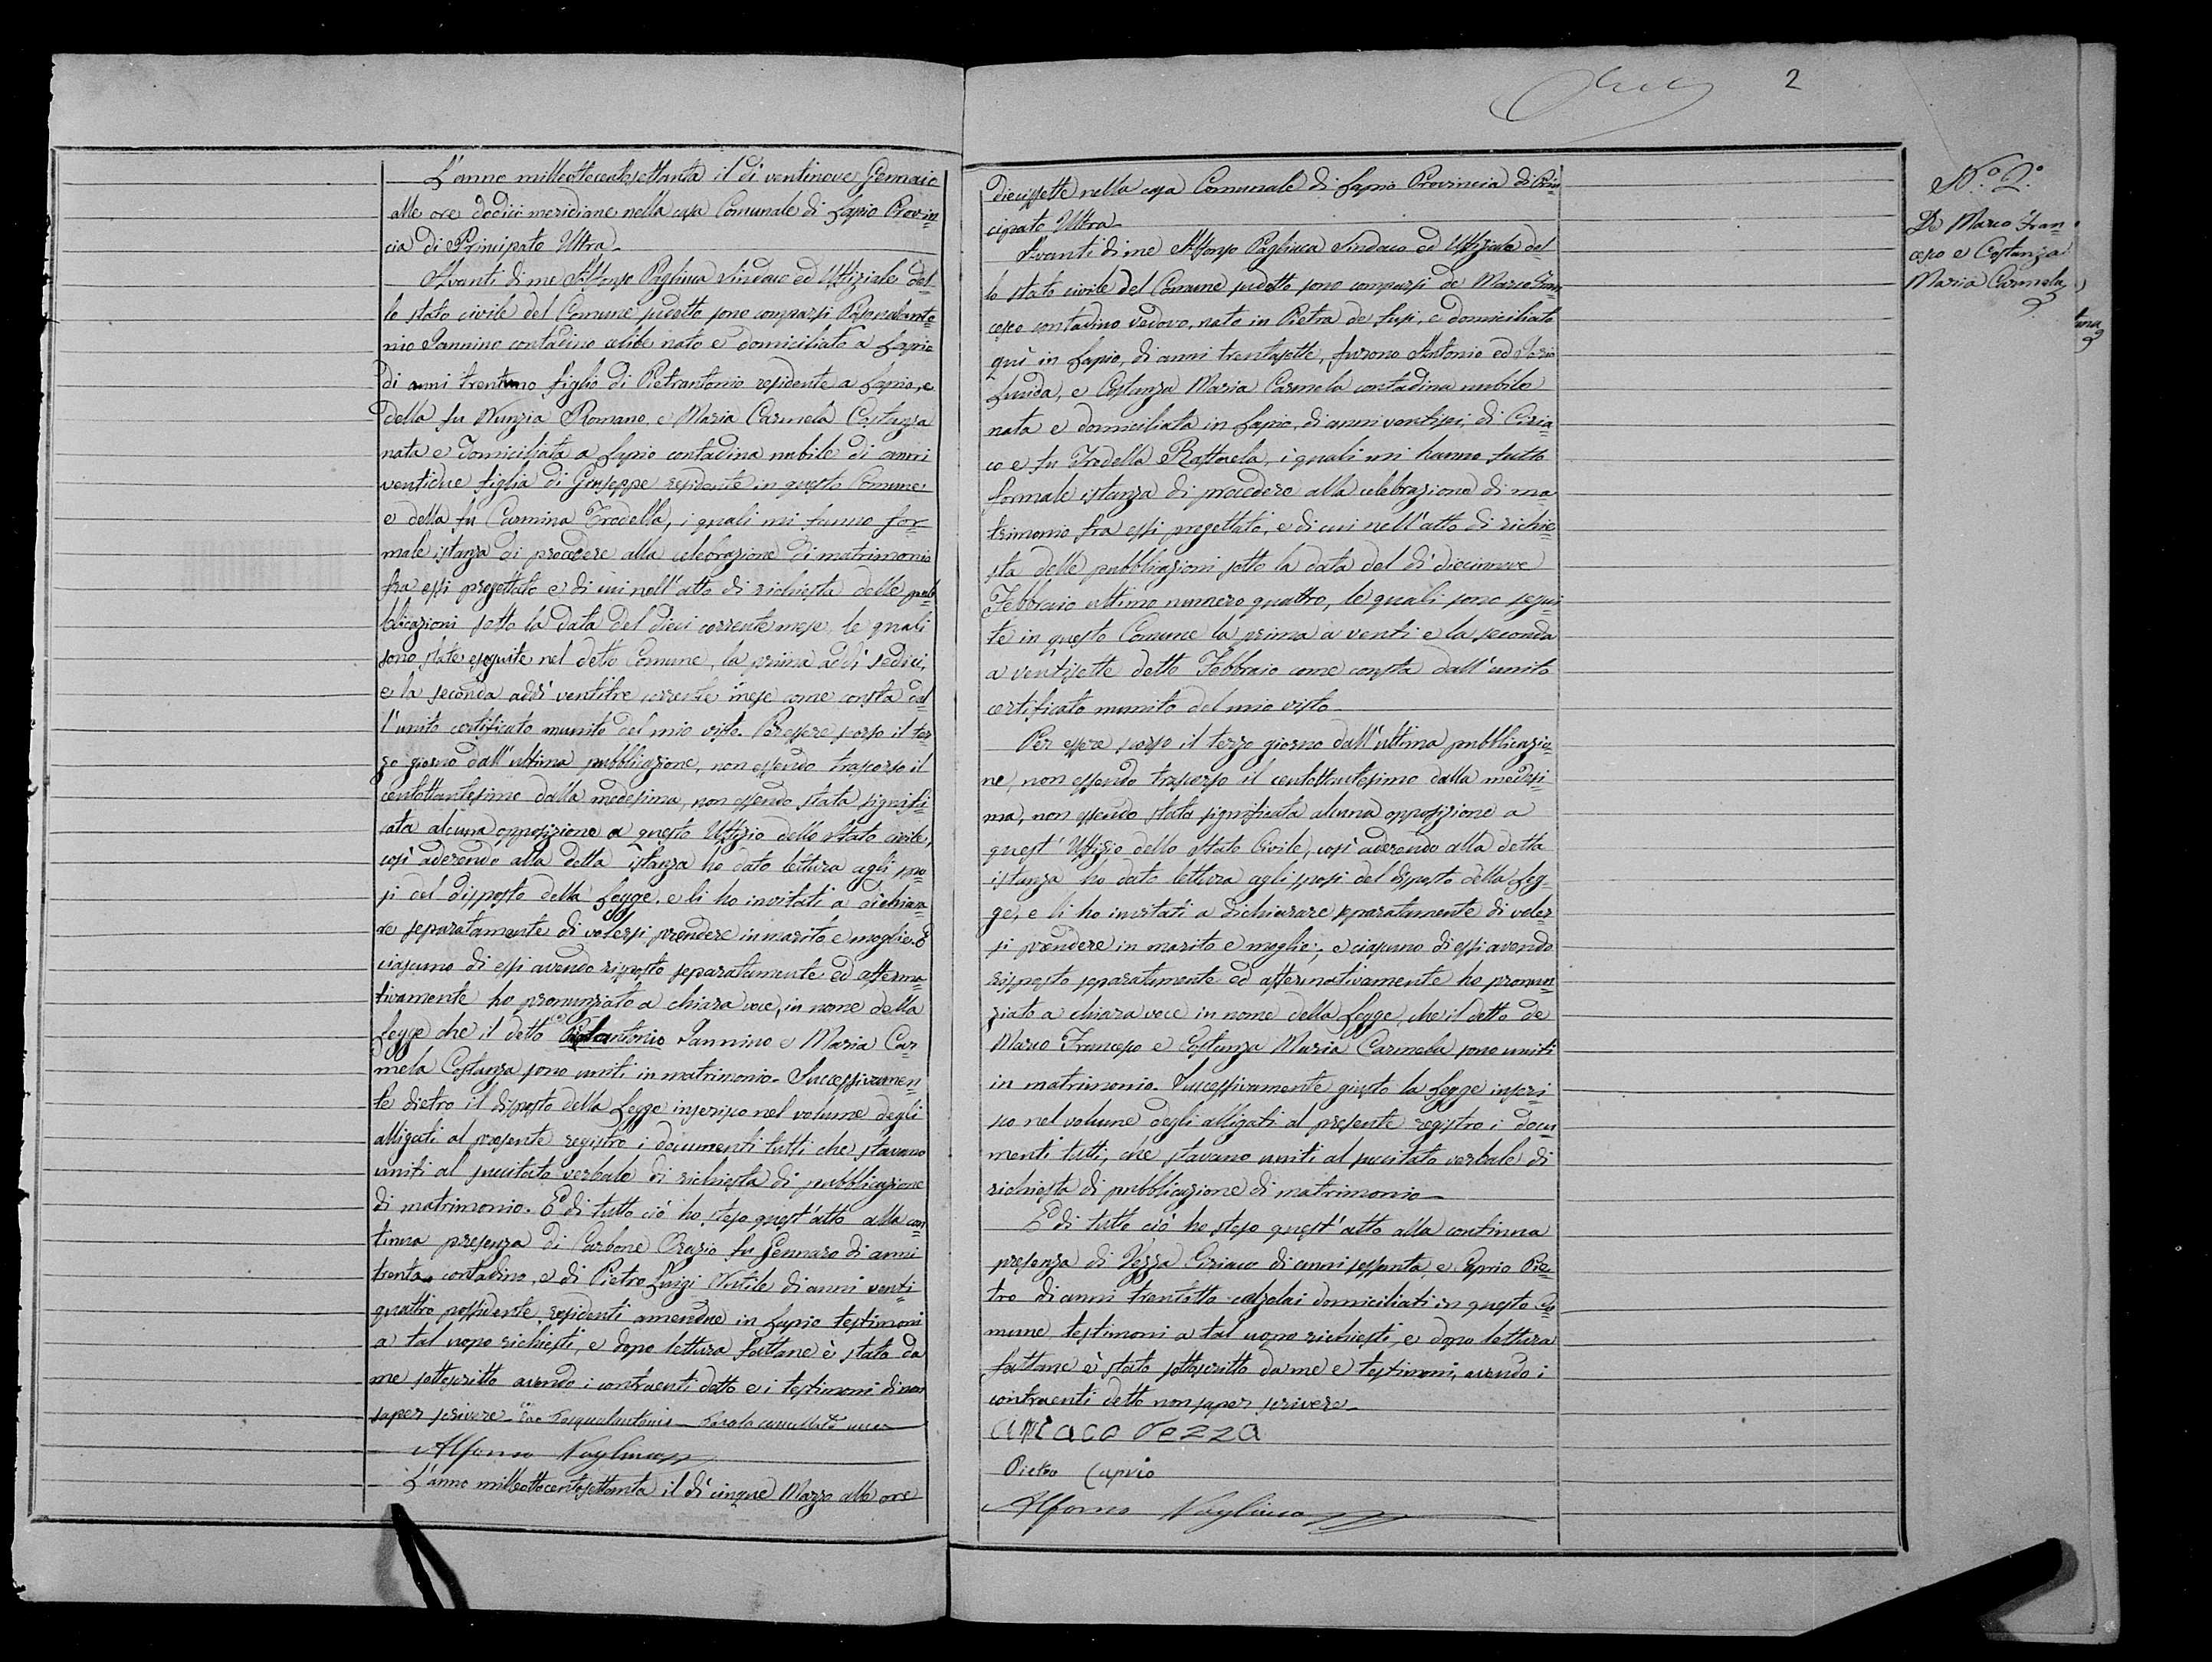 L'anno milleottocentosettanta il dì ventinove Gennaio
alle ore dodici meridiane nella casa Comunale di Lapio Provin=
cia di Principato Ultra_
Avanti di me Alfonso Pagliuca Sindaco ed Uffiziale del=
lo stato civile del Comune sudetto sono comparsi
nio Iannino contadino celibe nato e domiciliato a Lapio
di anni trentuno figlio di Pietrantonio residente a Lapio, e
della fu Nunzia Romano, e Maria Carmela Costanza
nata e domiciliata a Lapio contadina nubile di anni
ventidue figlia di Giuseppe residente in questo Comune
e della fu Carmina Trodella, i quali mi fanno for=
male istanza di procedere alla celebrazione di matrimonio
fra essi progettato e di cui nell'atto di richiesta delle pub=
blicazioni sotto la data del dieci corrente mese, le quali
sono state eseguite nel detto Comune, la prima addì sedici,
e la seconda addì ventitre corrente mese come costa dal=
l'unito certificato munito del mio visto. Per essere scorso il ter=
zo giorno dall'ultima pubblicazione, non essendo trascorso il
centottantesimo dalla medesima, non essendo stata signifi=
cata alcuna opposizione a questo Uffizio dello Stato civile,
così aderendo alla detta istanza ho dato lettura agli spo=
si del disposto della Legge, e li ho invitati a dichiara=
re separatamente di volersi prendere in marito e moglie. E
ciascuno di essi avendo risposto separatamente ed afferma=
tivamente ho pronunziato a chiara voce, in nome della
Legge che il detto Iannino e Maria Car=
mela Costanza sono uniti in matrimonio. Successivamen=
te dietro il disposto della Legge inserisco nel volume degli
alligati al presente registro i documenti tutti che stavano
uniti al succitato verbale di richiesta di pubblicazione
di matrimonio. E di tutto ciò ho steso quest'atto alla con=
tinua presenza di Carbone Orazio fu Gennaro di anni
trenta contadino, e di Pietro Luigi di anni venti=
quattro possidente, residenti amendue in Lapio testimoni
a tal uopo richiesti, e dopo lettura fattane è stato da
me sottoscritto avendo i contraenti detto e i testimoni di non
saper scrivere_ Pasqualantonio_ Parola cancellata
Alfonso Pagliuca
L'anno milleottocentosettanta il dì cinque Marzo alle ore
2
diecissette nella casa Comunale di Lapio Provincia di Prin=
cipato Ultra_
Avanti di me Alfonso Pagliuca Sindaco ed Uffiziale del=
lo stato civile del Comune sudetto sono comparsi de Marco Fran=
cesco contadino vedovo, nato in Pietra de fusi, e domiciliato
quì in Lapio, di anni trentasette, furono Antonio ed
e Costanza Maria Carmela contadina nubile
nata e domiciliata in Lapio, di anni ventisei, di Ciria=
co e fu Trodella Raffaela, i quali mi hanno fatto
formale istanza di procedere alla celebrazione di ma
trimonio fra essi progettato, e di cui nell'atto di richie
sta delle pubblicazioni sotto la data del dì diecinove
Febbraio ultimo numero quattro, le quali sono segui
te in questo Comune la prima a venti e la seconda
a ventisette detto Febbraio come costa dall'unito
certificato munito del mio visto_
Per essere scorso il terzo giorno dall'ultima pubblicazio=
ne, non essendo trascorso il centottantesimo dalla medesi
ma, non essendo stata significata alcuna opposizione a
quest'Uffizio dello Stato Civile, così aderendo alla detta
istanza ho dato lettura agli sposi del disposto della Leg=
ge, e li ho invitati a dichiarare separatamente di voler
si prendere in marito e moglie; e ciascuno di essi avendo
risposto separatamente ed affermativamente ho pronun
ziato a chiara voce in nome della Legge, che il detto de
Marco Francesco e Costanza Maria Carmela sono uniti
in matrimonio. Successivamente giusto la Legge inseri=
sco nel volume degli alligati al presente registro i docu
menti tutti, che stavano uniti al succitato verbale di
richiesta di pubblicazione di matrimonio_
E di tutto ciò ho steso quest'atto alla continua
presenza di Vezza Ciriaco di anni sessanta, e Caprio Pie=
tro di anni trentotto calzolai domiciliati in questo Co=
mune testimoni a tal uopo richiesti, e dopo lettura
fattane è stato sottoscritto da me e testimoni, avendo i
contraenti detto non saper scrivere_
Vezza
Pietro Caprio
Alfonso Pagliuca
N.° 2.°
De Marco Fran=
cesco e Costanza
Maria Carmela